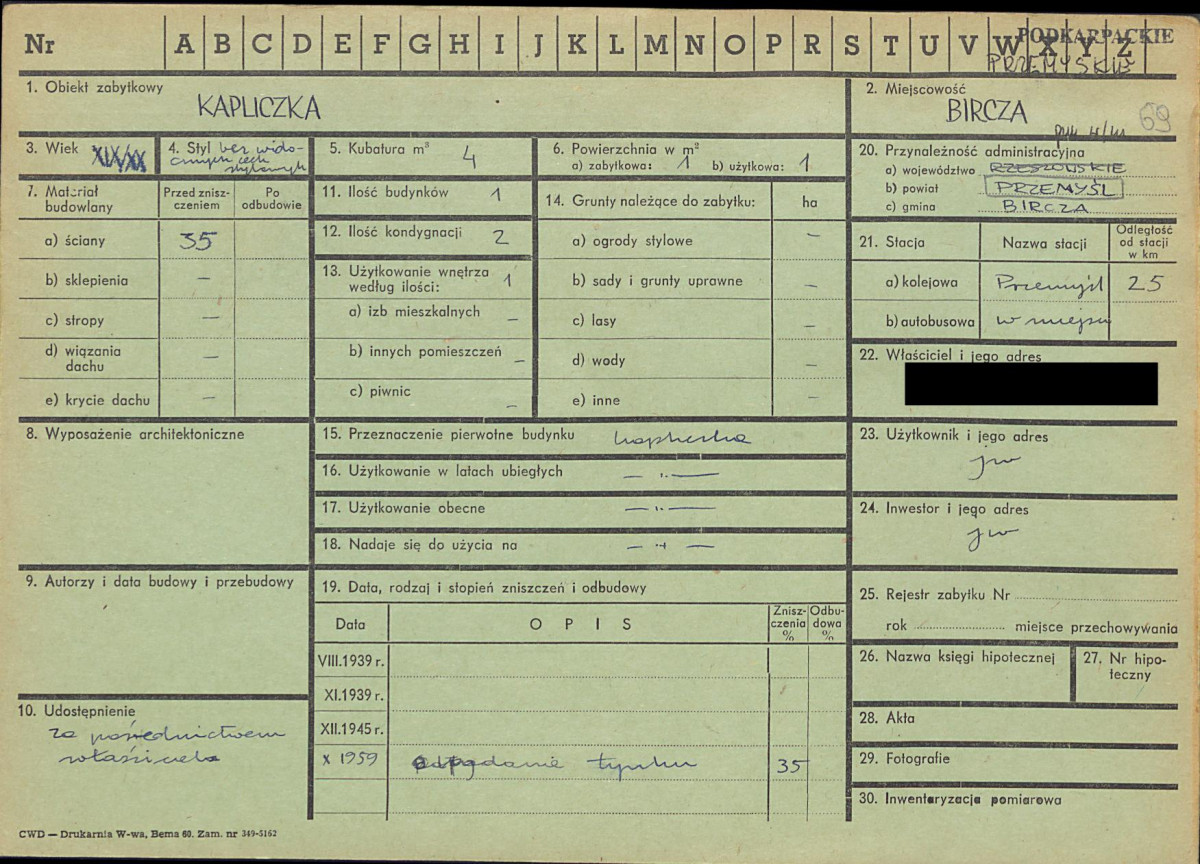 Nr A B C D E F G H I J K L M N O P R S T U V W X Y Z
PODKARPACKIE
PRZEMYSKIE
1. Obiekt zabytkowy
KAPLICZKA
2. Miejscowość
BIRCZA
69
3. Wiek XIX/XX
4. Styl bez wido-
cznych cech
stylowych
5. Kubatura m³ 4
6. Powierzchnia w m²
a) zabytkowa: 1 b) użytkowa: 1
7. Materiał
budowlany
Przed znisz-
czeniem
Po
odbudowie
a) ściany 35
b) sklepienia –
c) stropy –
d) wiązania
dachu –
e) krycie dachu –
11. Ilość budynków 1
12. Ilość kondygnacji 2
13. Użytkowanie wnętrza
według ilości: 1
a) izb mieszkalnych –
b) innych pomieszczeń –
c) piwnic –
14. Grunty należące do zabytku: ha
a) ogrody stylowe –
b) sady i grunty uprawne –
c) lasy –
d) wody –
e) inne –
20. Przynależność administracyjna
a) województwo RZESZOWSKIE
b) powiat PRZEMYŚL
c) gmina BIRCZA
21. Stacja Nazwa stacji
Odległość
od stacji
w km
a) kolejowa Przemyśl 25
b) autobusowa w miejscu
22. Właściciel i jego adres
8. Wyposażenie architektoniczne
15. Przeznaczenie pierwotne budynku kapliczka
16. Użytkowanie w latach ubiegłych — „ —
17. Użytkowanie obecne — „ —
18. Nadaje się do użycia na — „ —
23. Użytkownik i jego adres
jw
24. Inwestor i jego adres
jw
9. Autorzy i data budowy i przebudowy
19. Data, rodzaj i stopień zniszczeń i odbudowy
Data OPIS
Znisz-
czenia
%
Odbu-
dowa
%
VIII.1939 r.
XI.1939 r.
XII.1945 r.
X 1959 odpadanie tynku 35
25. Rejestr zabytku Nr
rok miejsce przechowywania
26. Nazwa księgi hipotecznej
27. Nr hipo-
teczny
28. Akta
29. Fotografie
30. Inwentaryzacja pomiarowa
10. Udostępnienie
za pośrednictwem
właściciela
CWD — Drukarnia W-wa, Bema 60. Zam. nr 349-5162